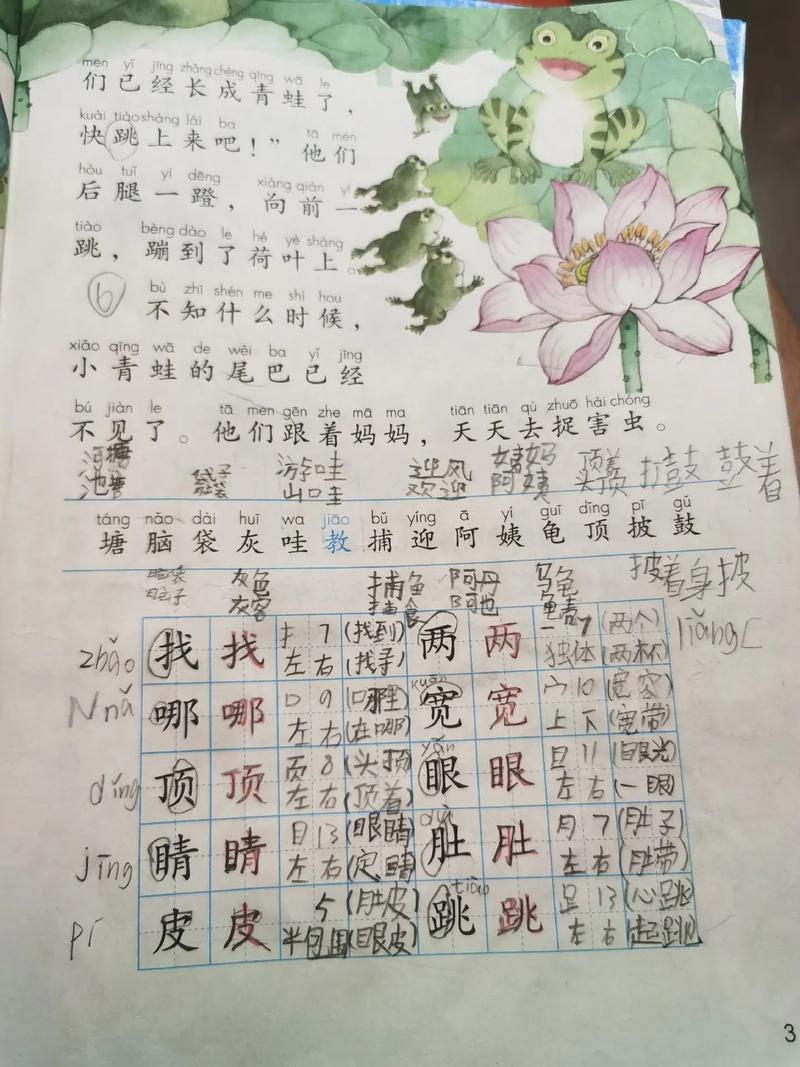 men yǐ jīng zhǎng chéng qīng wā le
们已经长成青蛙了，
kuài tiào shàng lái ba tā men
快跳上来吧！”他们
hòu tuǐ yì dēng xiàng qián yí
后腿一蹬，向前一
tiào bèng dào le hé yè shàng
跳，蹦到了荷叶上。
⑥
bù zhī shén me shí hou
不知什么时候，
xiǎo qīng wā de wěi ba yǐ jīng
小青蛙的尾巴已经
bú jiàn le tā men gēn zhe mā ma tiān tiān qù zhuō hài chóng
不见了。他们跟着妈妈，天天去捉害虫。
河塘 袋子 迎风 姨妈 顶着 打鼓 鼓着
池塘 脑袋 山口哇 欢迎 阿姨 头顶
táng nǎo dài huī wa jiāo bǔ yíng ā yí guī dǐng pī gǔ
塘脑袋灰哇教捕迎阿姨龟顶披鼓
脑袋 灰色 捕鱼 阿丹 乌龟 披着 身披
脑子 灰客 捕食 阿也
zhǎo 找 找 扌 7 (找到) 两 两 一 7 (两个) liǎng
左右 (找寻) 独体 (两杯)
nǎ 哪 哪 口 9 (哪里) kuān 宽 宽 宀 10 (宽容)
左右 (在哪) 上下 (宽带)
dǐng 顶 顶 页 8 (头顶) yǎn 眼 眼 目 11 (眼光)
左右 (顶着) 左右 (一眼)
jīng 睛 睛 目 13 (眼睛) dù 肚 肚 月 7 (肚子)
左右 (定睛) 左右 (肚带)
pí 皮 皮 5 (肚皮) tiào 跳 跳 足 13 (心跳)
半包围 (眼皮) 左右 (起跳)
3